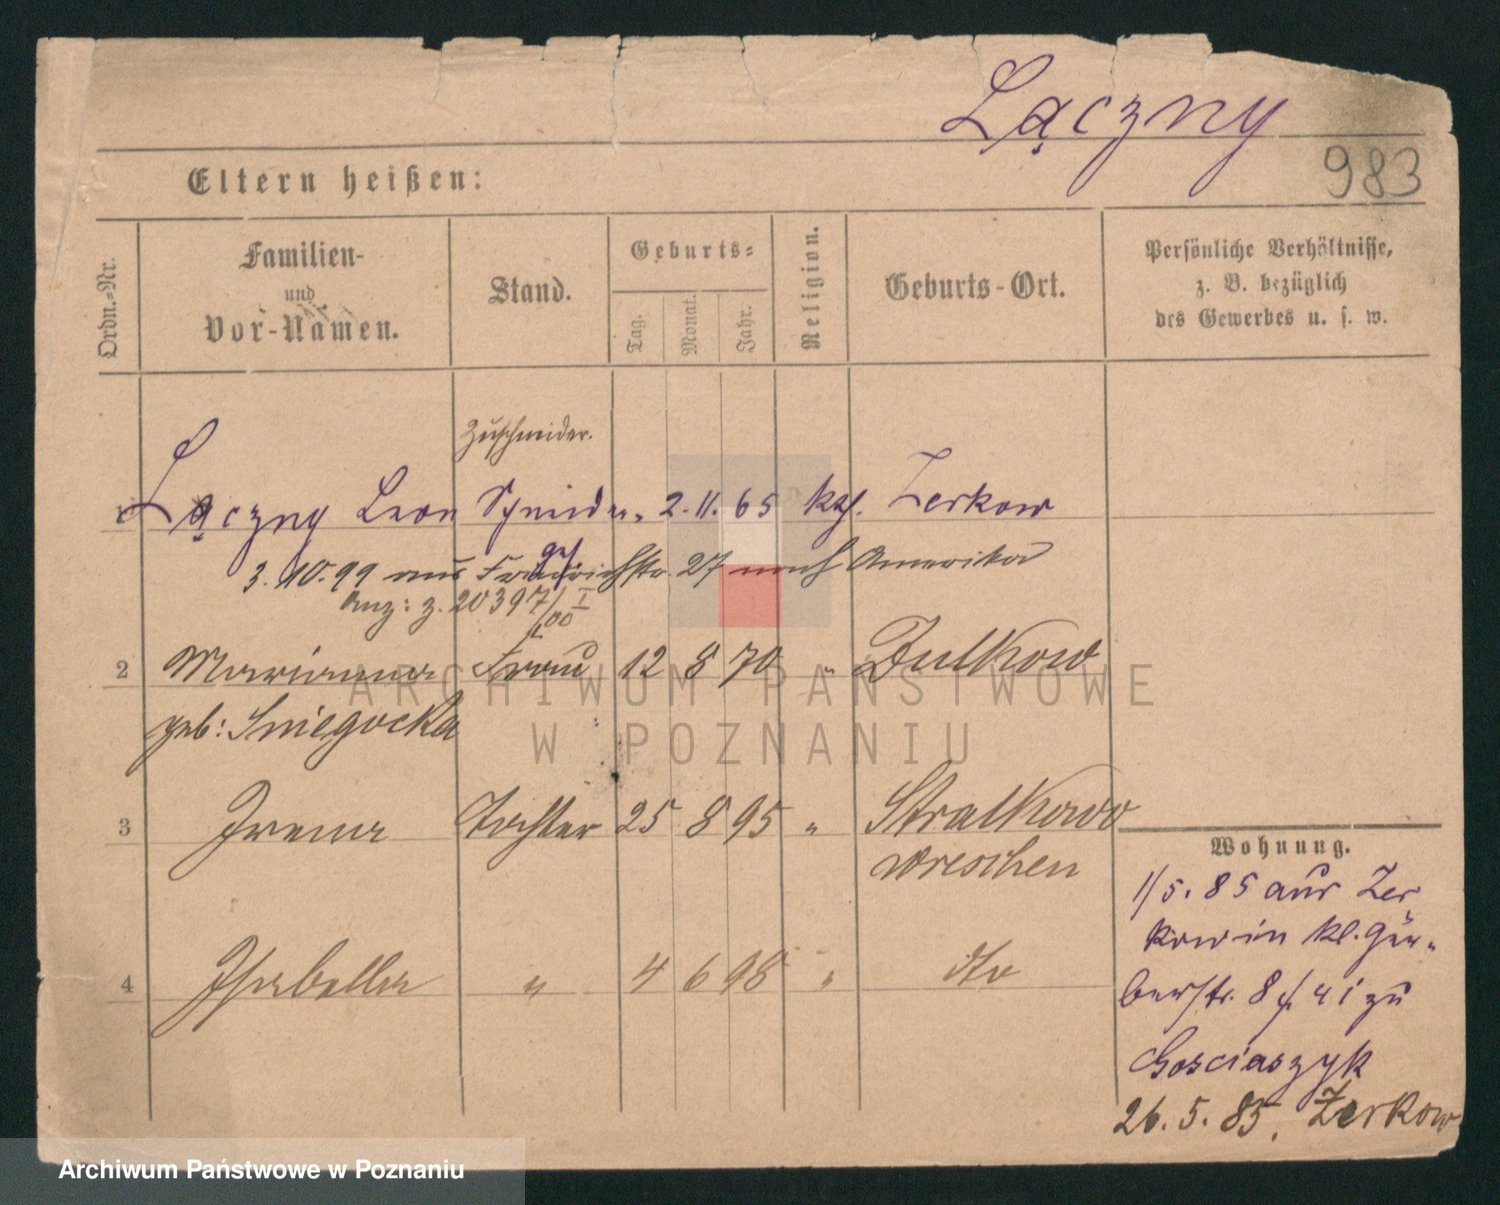 Lączny
983
Eltern heißen:
Ordn.-Nr.
Familien-
und
Vor-Namen.
Stand.
Geburts-
Tag.
Monat.
Jahr.
Religion.
Geburts-Ort.
Persönliche Verhältnisse,
z. B. bezüglich
des Gewerbes u. s. w.
Zuschneider.
1 Lączny Leon Schneider. 2. 11. 65 kath. Zerkow
3. 10. 99 aus Friedrichstr. 27 nach Amerika
Anz: z. 20397/00 I
2 Marianna Frau 12 8 70 " Dulkow
geb: Sniegocka
3 Irena Tochter 25 8 95 " Stralkowo
Wreschen
4 Isabella " 4 6 98 " dto
Wohnung.
1/5. 85 aus Zer
kow in kl. Ger-
berstr. 8 zu
Gosciaszyk
26. 5. 85. Zerkow
ARCHIWUM PAŃSTWOWE
W POZNANIU
Archiwum Państwowe w Poznaniu